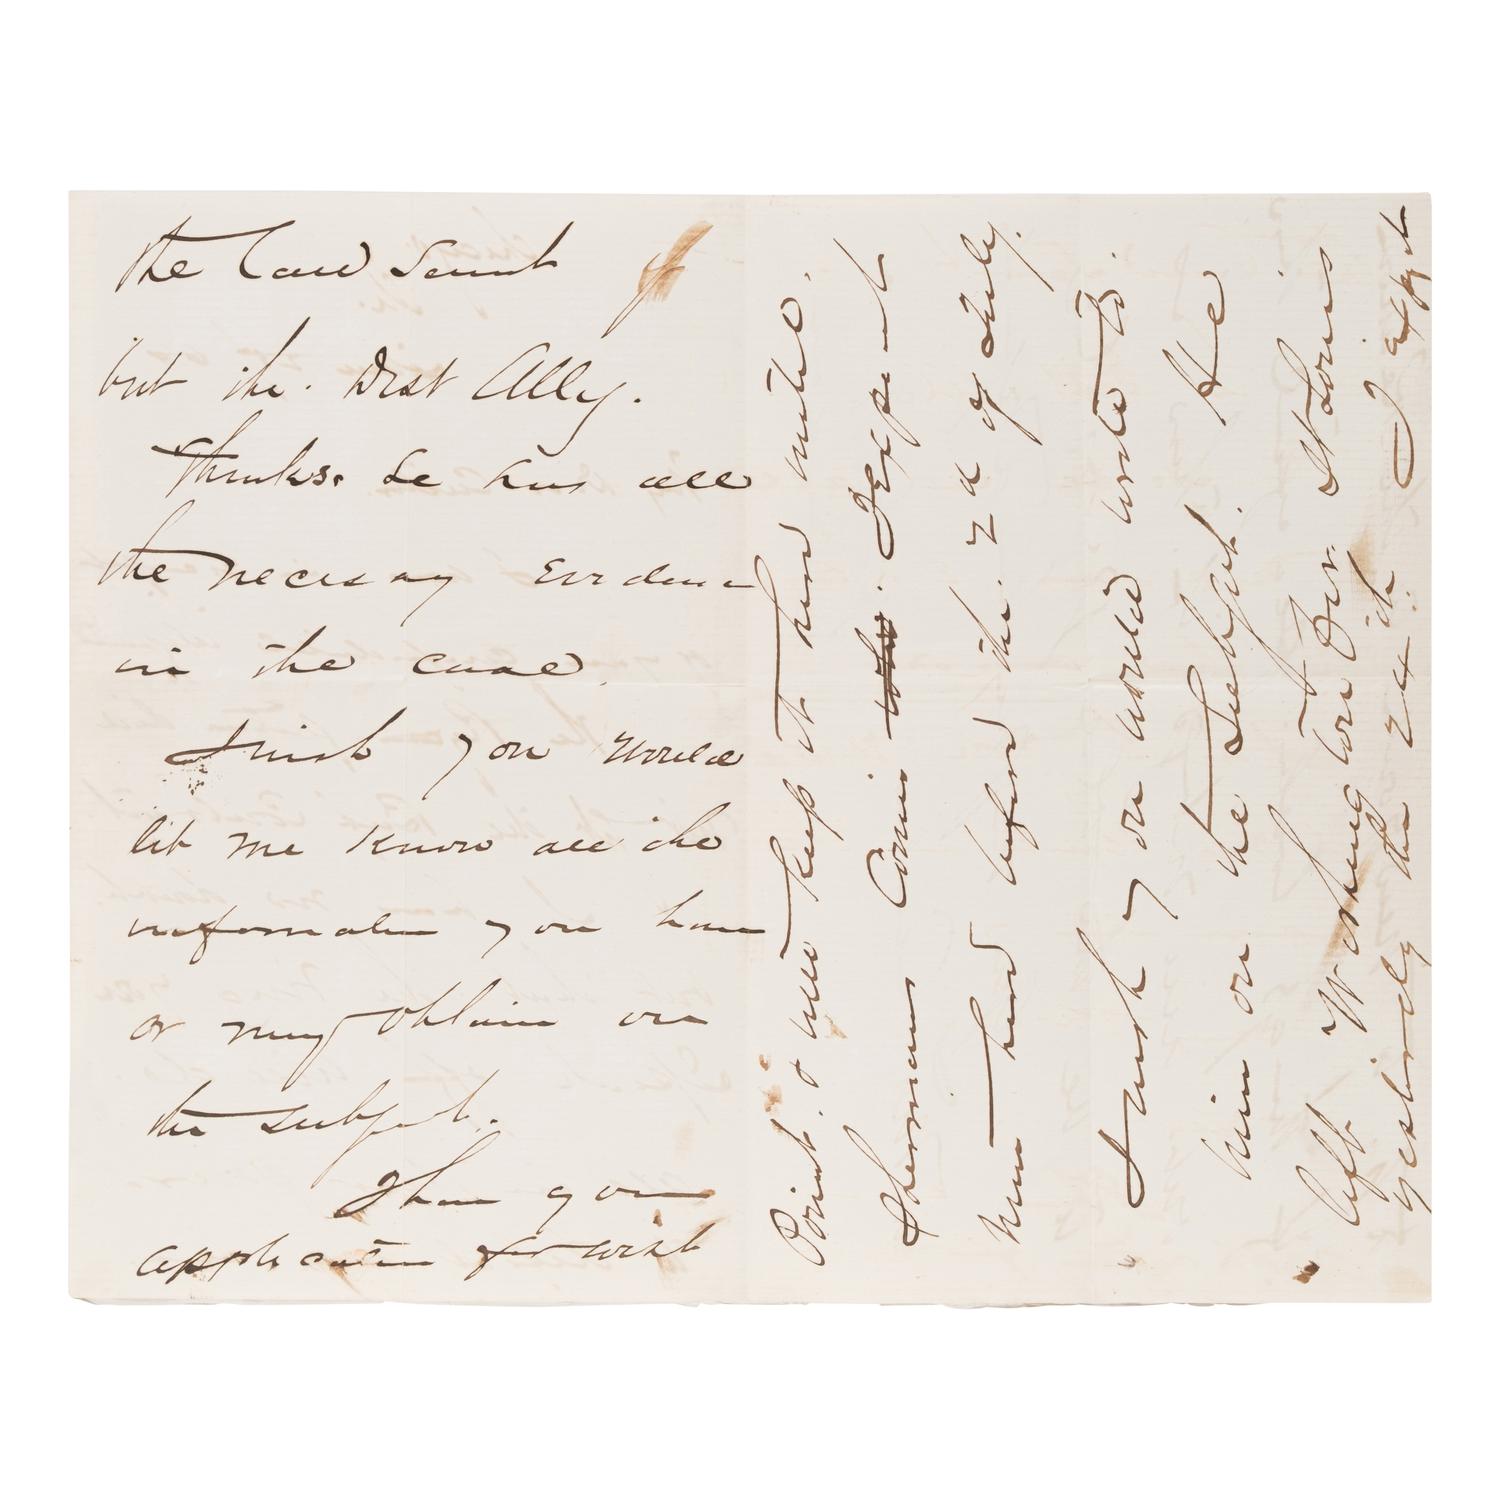 the Case Sent
but the Dist Atty.
thinks he has all
the necessay Evidence
in the case.
I wish you would
let me know all the
information you have
or may obtain on
the subject.
I have your
application for west
Point & will keep it here until
Shermans Comi Depeat
ment here before the 2d of July.
I wish you would write to
him on the subject. He
left Washington for St Louis
yesterday the 24th. I expect